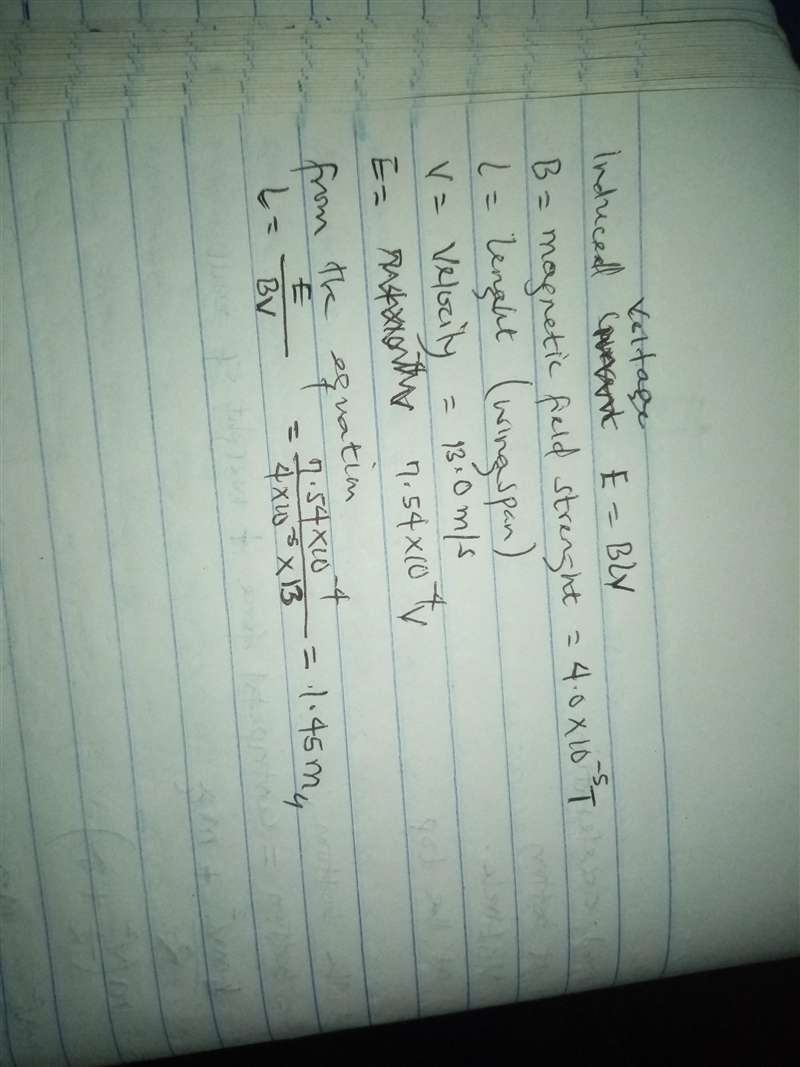 Voltage
Induced E = BLV
B = magnetic field strenght = 4.0 × 10⁻⁵ T
L = Lenght (wingspan)
V = Velocity = 13.0 m/s
E = 7.54 × 10⁻⁴ V
from the equation
L = E / BV = 7.54 × 10⁻⁴ / 4 × 10⁻⁵ × 13 = 1.45 m